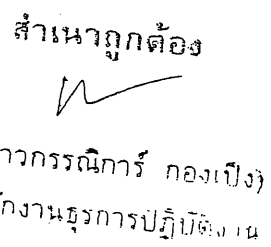 สำเนาถูกต้อง
าวกรรณิการ์ กองเป็ง)
กงานธุรการปฏิบัติงาน